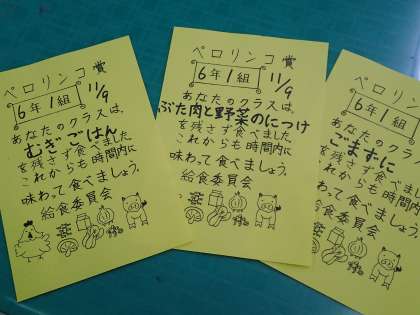 ペロリンコ賞
6年1組
11/9
あなたのクラスは、
むぎごはん
を残さず食べました。
これからも時間内に
味わって食べましょう。
給食委員会
ペロリンコ賞
6年1組
11/9
あなたのクラスは、
ぶた肉と野菜のにつけ
を残さず食べました。
これからも時間内に
味わって食べましょう。
給食委員会
ペロリンコ
6年1組
あなたのクラスは
ごまずに
を残さず食べまし
これからも時間
味わって食べましょ
給食委員会